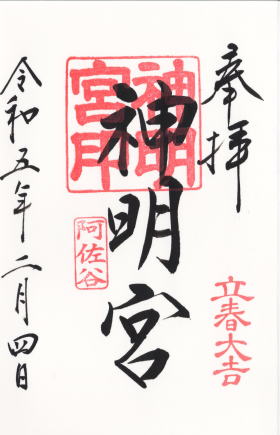 奉拝
立春大吉
神明宮
神明宮
阿佐谷
令和五年二月四日